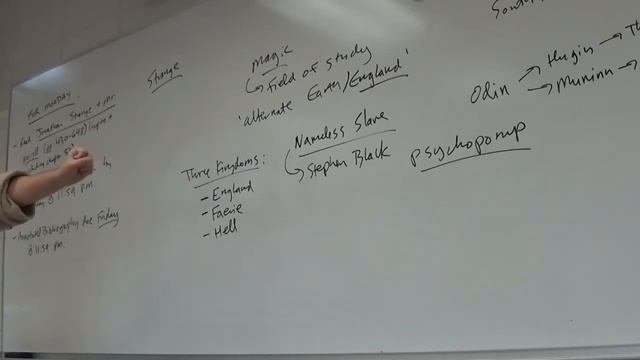 FOR MONDAY:
- Read Jonathan Strange + Mr.
Norrell
@ 11:59 PM.
- Annotated Bibliography due Friday
@ 11:59 PM.
Strange
Magic
↳ Field of study
'alternate Earth/England'
Three Kingdoms:
- England
- Faerie
- Hell
Nameless Slave
↳ Stephen Black
psychopomp
Odin → Huginn →
→ Muninn →